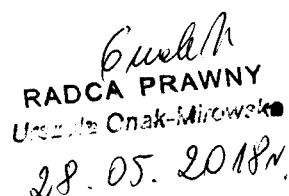 RADCA PRAWNY
Urszula Onak-Mirowska
28.05.2018r.